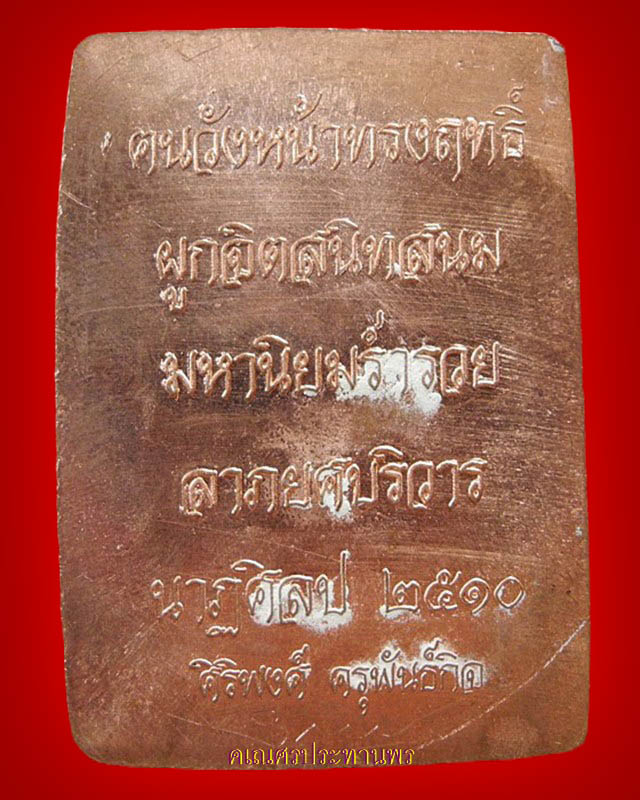 ฅนวังหน้าทรงฤทธิ์
ผูกจิตสนิทสนม
มหานิยมร่ำรวย
ลาภยศบริวาร
นาฏศิลป ๒๕๑๐
ศิริพงศ์ ครุพันธ์กิจ
คเณศรประทานพร